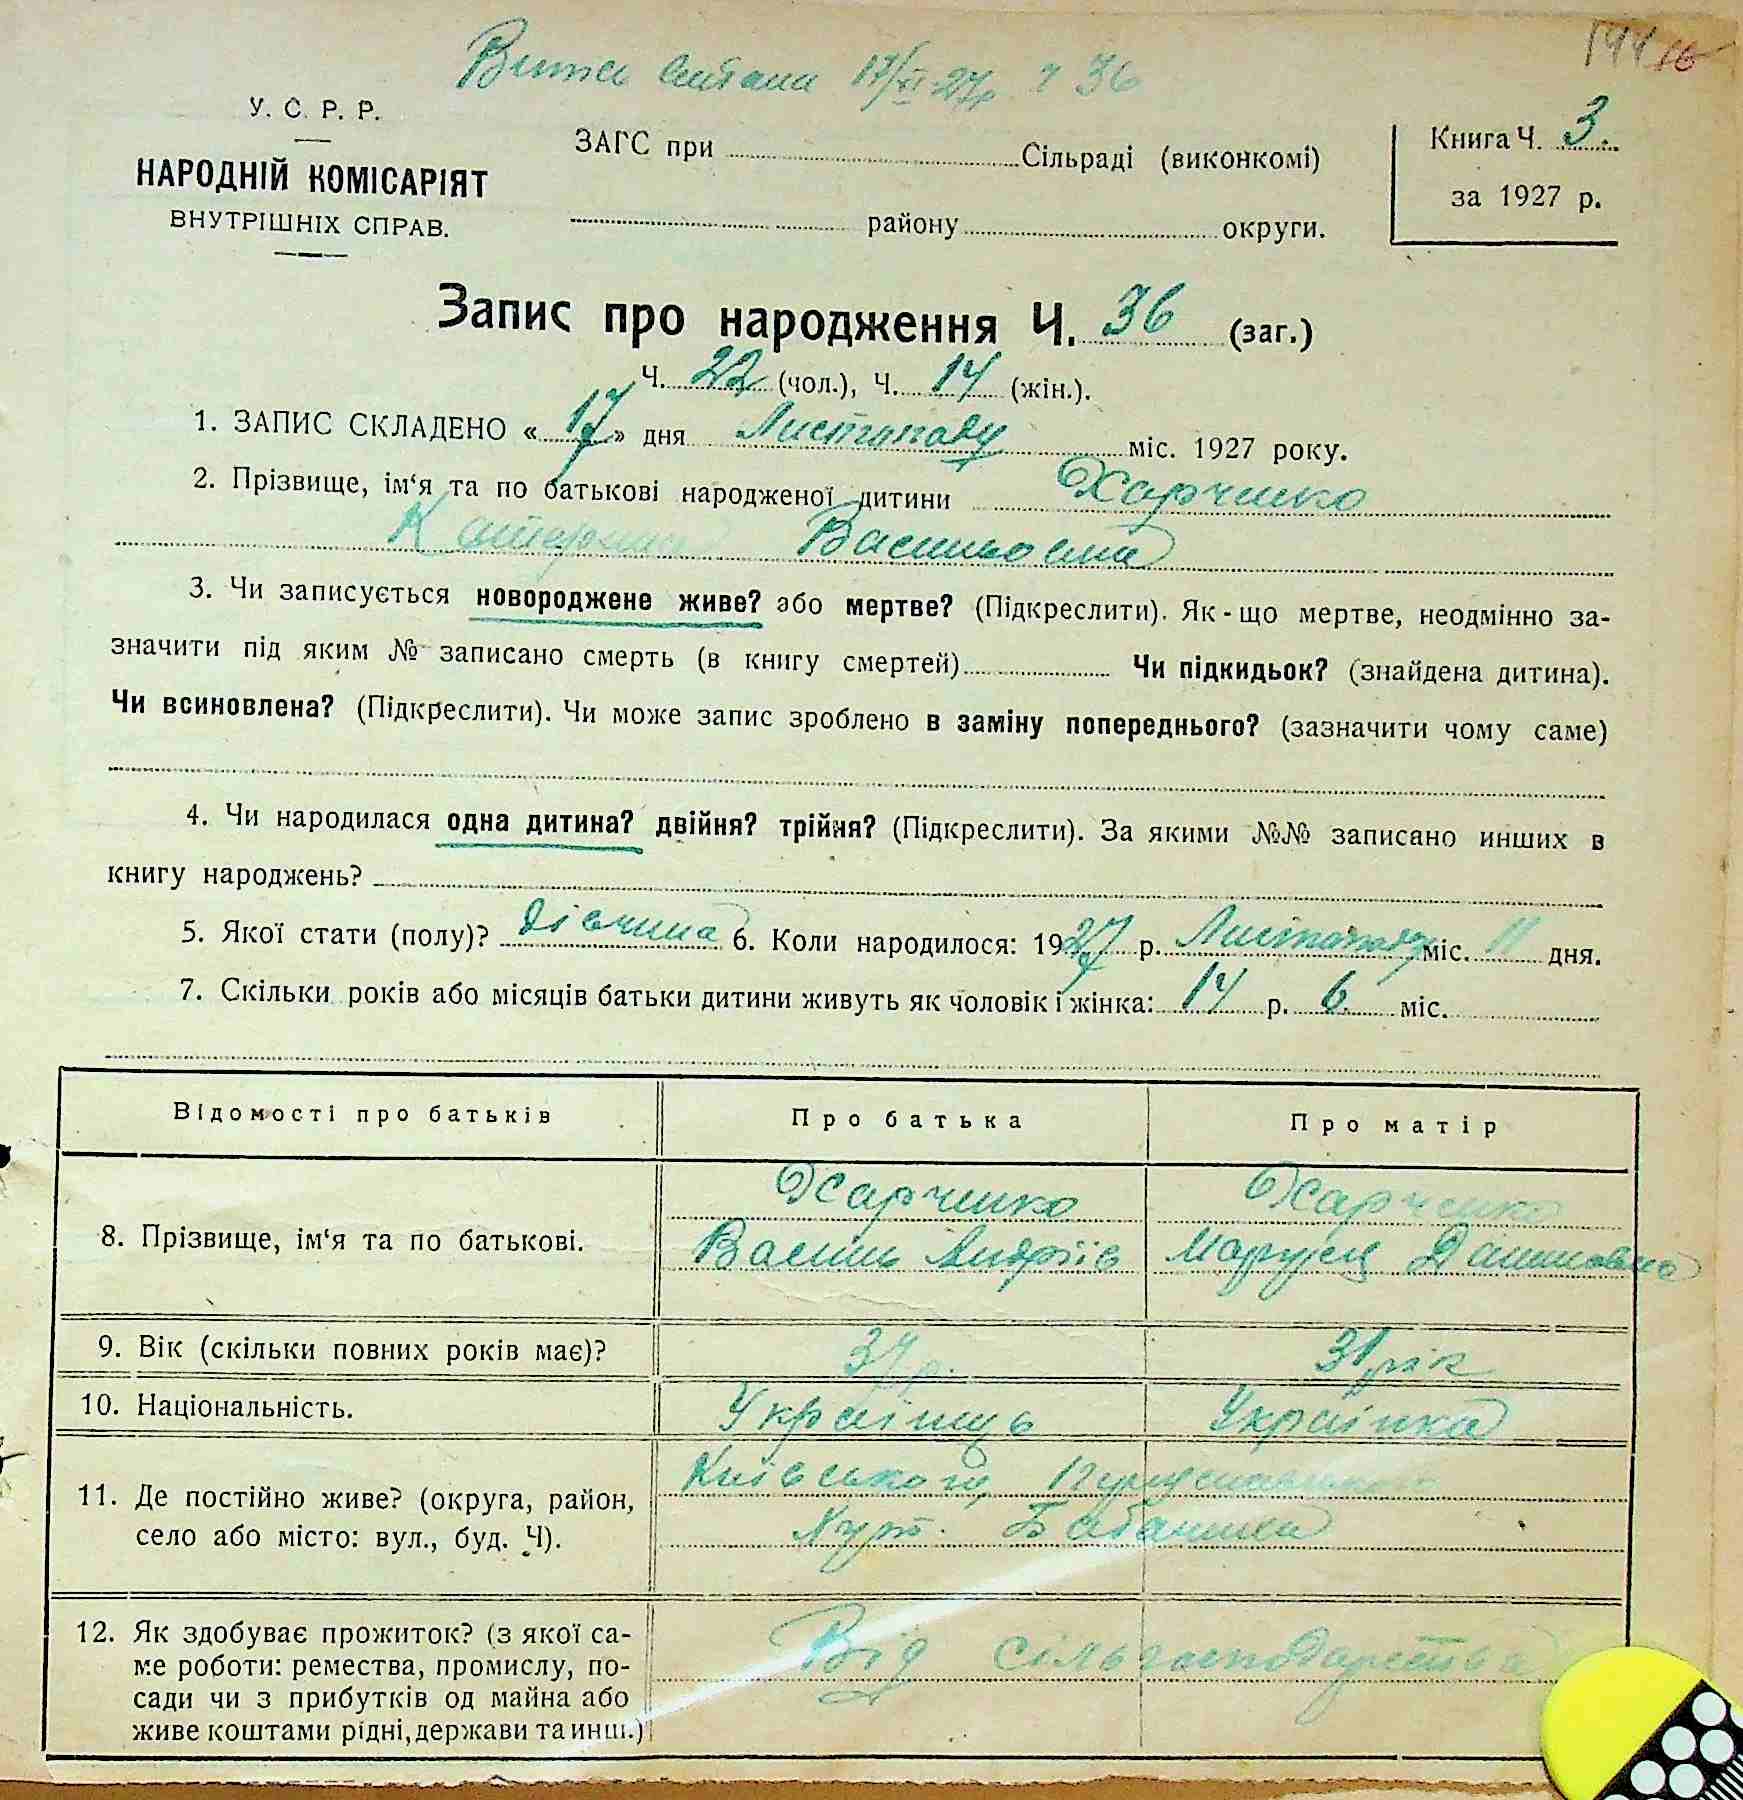 17/XI 27р. Ч 36
У. С. Р. Р.
НАРОДНІЙ КОМІСАРІЯТ
ВНУТРІШНІХ СПРАВ.
ЗАГС при Сільраді (виконкомі)
району округи.
Книга Ч. 3.
за 1927 р.
Запис про народження Ч. 36 (заг.)
Ч. 22 (чол.), Ч. 14 (жін.).
1. ЗАПИС СКЛАДЕНО « 17 » дня Листопаду міс. 1927 року.
2. Прізвище, ім‘я та по батькові народженої дитини Харченко
Катерина Василовна
3. Чи записується новороджене живе? або мертве? (Підкреслити). Як-що мертве, неодмінно за-
значити під яким № записано смерть (в книгу смертей) Чи підкидьок? (знайдена дитина).
Чи всиновлена? (Підкреслити). Чи може запис зроблено в заміну попереднього? (зазначити чому саме)
4. Чи народилася одна дитина? двійня? трійня? (Підкреслити). За якими №№ записано инших в
книгу народжень?
5. Якої стати (полу)? дівчина 6. Коли народилося: 1927 р. Листопаду міс. 11 дня.
7. Скільки років або місяців батьки дитини живуть як чоловік і жінка: 14 р. 6 міс.
Відомості про батьків Про батька Про матір
8. Прізвище, ім‘я та по батькові.
Харченко Харченко
Василь Андріїв Марусц Даниловна
9. Вік (скільки повних років має)? 37 р. 31 рік
10. Національність. Українць Українка
11. Де постійно живе? (округа, район,
село або місто: вул., буд. Ч).
Київського,
Хут. Бабачиха
12. Як здобуває прожиток? (з якої са-
ме роботи: ремества, промислу, по-
сади чи з прибутків од майна або
живе коштами рідні, держави та инш.)
Від сільгосподарства